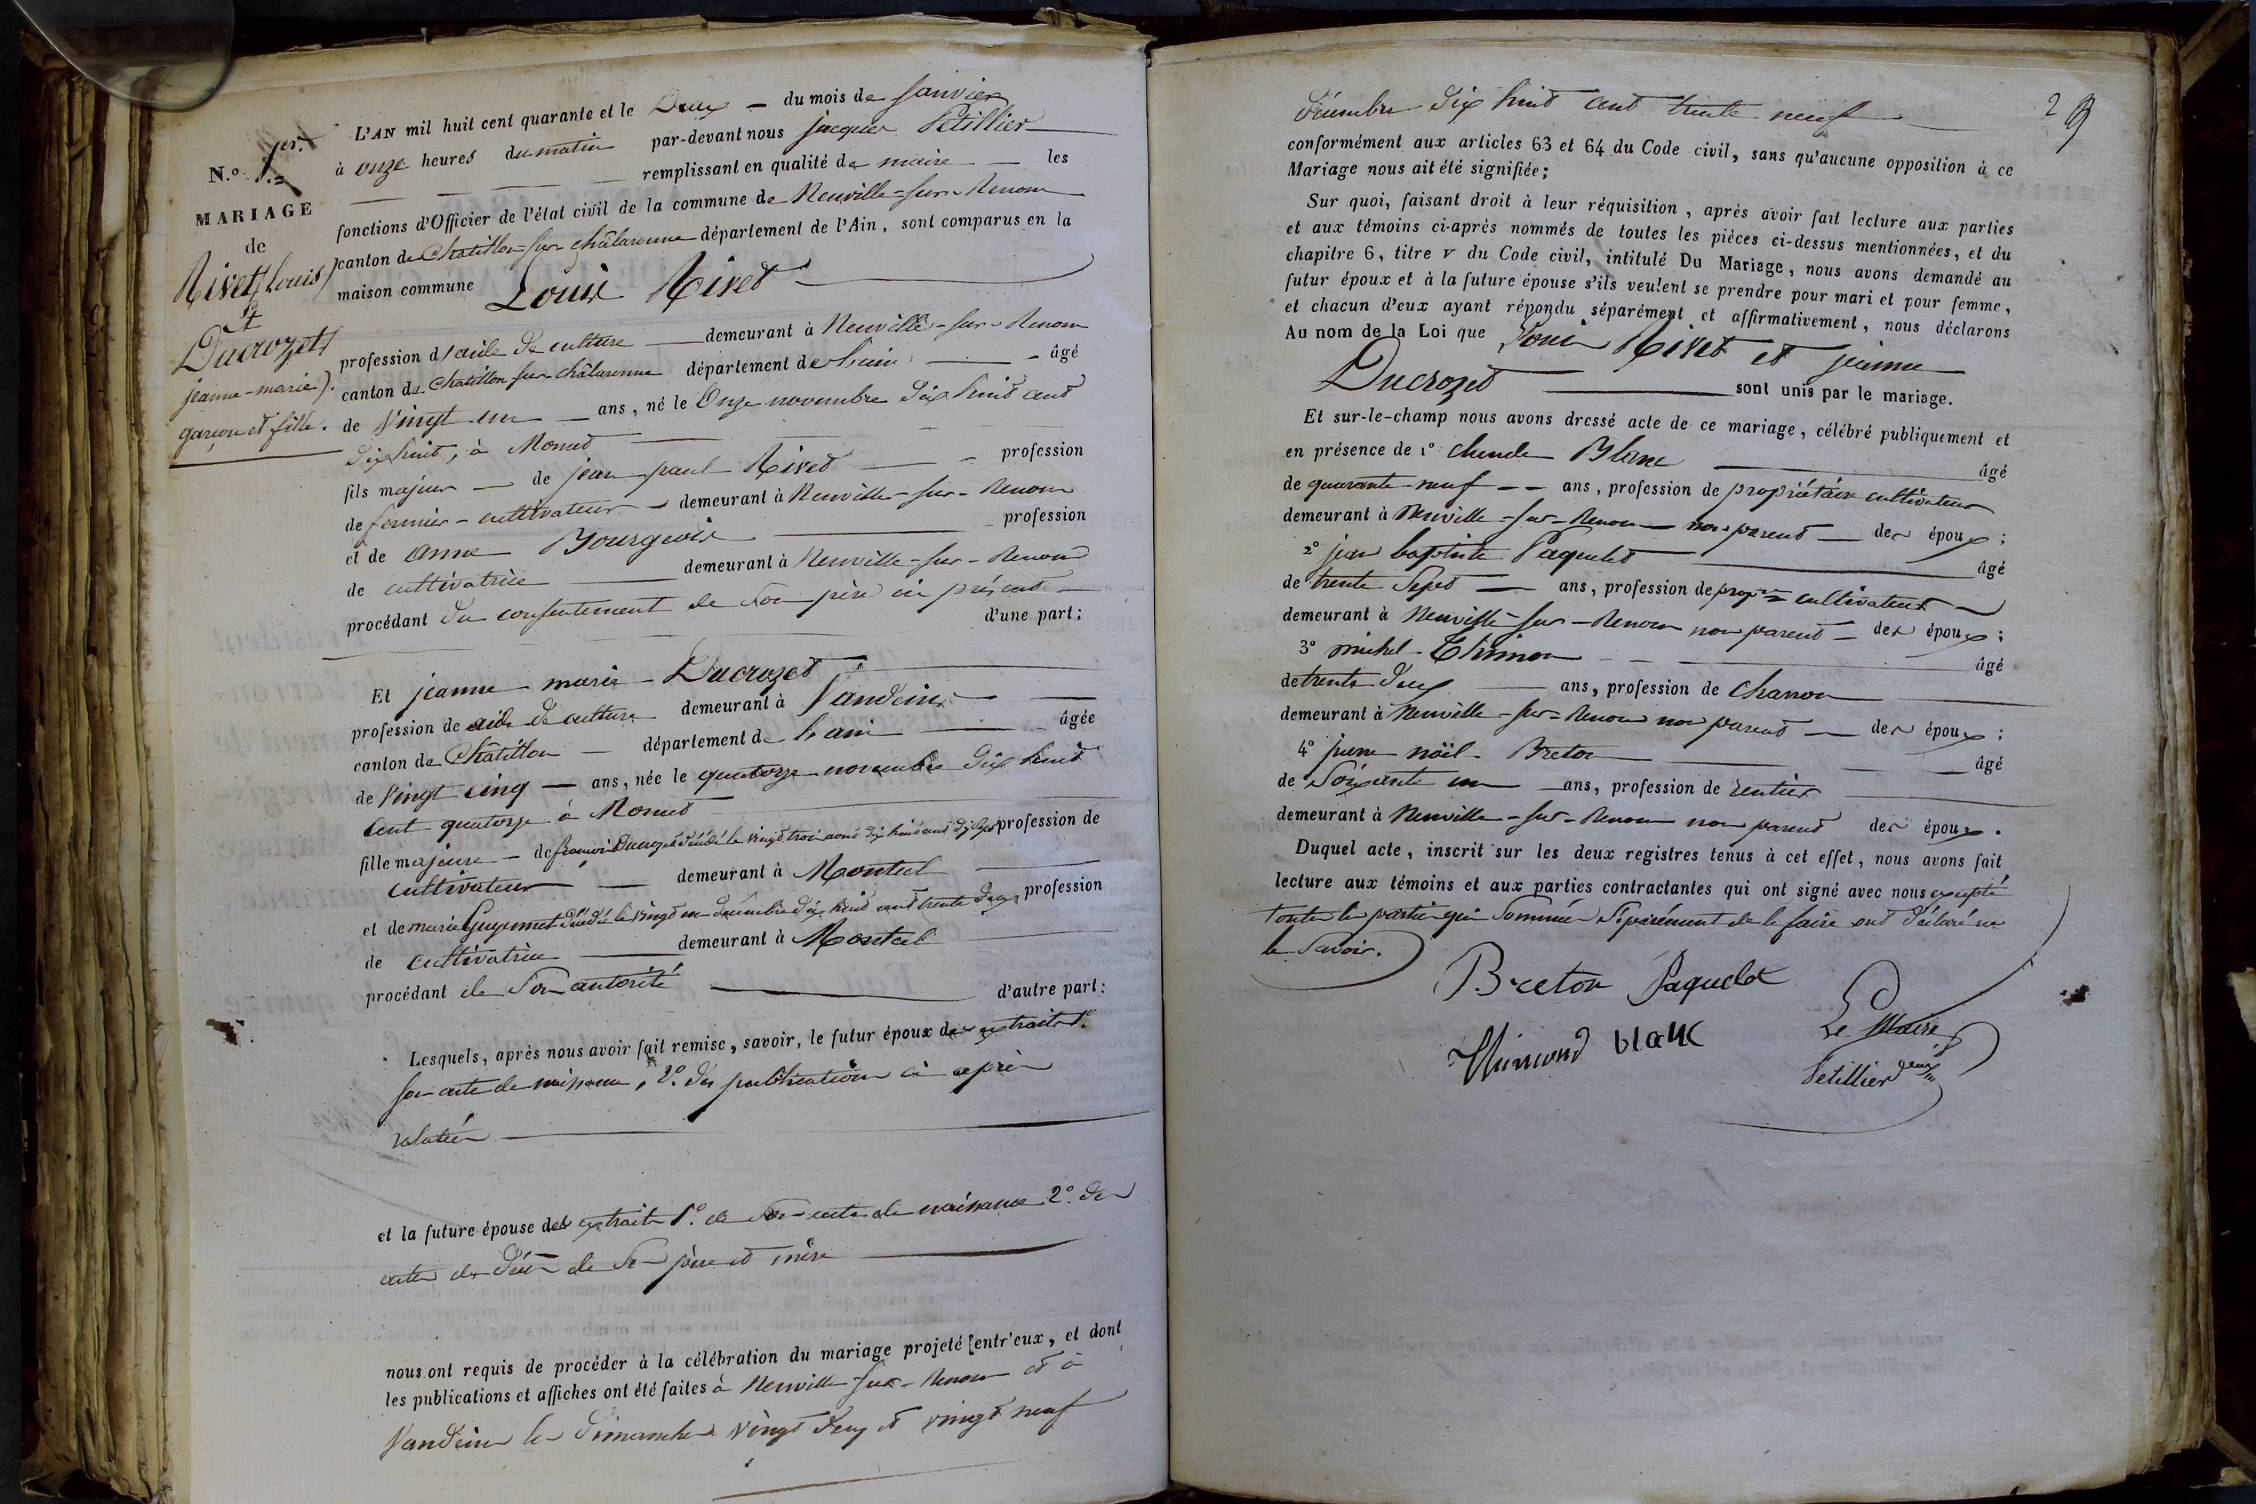 N.º 1.er
MARIAGE
de
Rivet (louis)
Et
Ducrozet
jeanne-marie).
garçon et fille.
L'AN mil huit cent quarante et le Deux du mois de janvier
à onze heures du matin par-devant nous jacques Petillier
remplissant en qualité de maire les
fonctions d'Officier de l'état civil de la commune de Neuville-sur-Renom
canton de Chatillon sur châlaronne département de l'Ain, sont comparus en la
maison commune Louis Rivet
profession d'aide de culture demeurant à Neuville-sur-Renom
canton de Chatillon sur châlaronne département de l'ain âgé
de vingt un ans, né le Onze novembre dix huit cent
dix huit, à
fils majeur de jean paul Rivet profession
de fermier-cultivateur demeurant à Neuville-sur-Renom
et de anne Bourgeois profession
de cultivatrice demeurant à Neuville-sur-Renom
procédant du consentement de son père ici présent
d'une part;
Et jeanne marie Ducrozet
profession de aide de culture demeurant à Vandeins
canton de Châtillon département de l'ain âgée
de vingt cinq ans, née le quatorze novembre dix huit
cent quatorze à
fille majeure de françois Ducrozet décédé le vingt trois août dix huit cent dix sept profession de
cultivateur demeurant à
et de marie Guyennet décédé le vingt un décembre dix huit cent trente deux profession
de cultivatrice demeurant à
procédant de son autorité
d'autre part:
Lesquels, après nous avoir fait remise, savoir, le futur époux des extraits 1.º
son acte de naissance, 2.º des publications ci après
relatées
et la future épouse des extraits 1.º de son acte de naissance 2.º des
actes de décès de ses père et mère
nous ont requis de procéder à la célébration du mariage projeté [entr'eux, et dont
les publications et affiches ont été faites à Neuville-sur-Renom et à
Vandeins les dimanches vingt deux et vingt neuf
2
décembre dix huit cent trente neuf
conformément aux articles 63 et 64 du Code civil, sans qu'aucune opposition à ce
Mariage nous ait été signifiée;
Sur quoi, faisant droit à leur réquisition, après avoir fait lecture aux parties
et aux témoins ci-après nommés de toutes les pièces ci-dessus mentionnées, et du
chapitre 6, titre v du Code civil, intitulé Du Mariage, nous avons demandé au
futur époux et à la future épouse s'ils veulent se prendre pour mari et pour femme,
et chacun d'eux ayant répondu séparément et affirmativement, nous déclarons
Au nom de la Loi que Louis Rivet et jeanne
Ducrozet sont unis par le mariage.
Et sur-le-champ nous avons dressé acte de ce mariage, célébré publiquement et
en présence de 1º claude Blanc âgé
de quarante neuf ans, profession de propriétaire cultivateur
demeurant à Neuville-sur-Renom non parent des époux;
2º jean baptiste Paquelet âgé
de trente sept ans, profession de prop.re cultivateur
demeurant à Neuville-sur-Renom non parent des époux;
3º michel Thimon âgé
de trente deux ans, profession de charron
demeurant à Neuville-sur-Renom non parent des époux;
4º pierre noël Breton âgé
de soixante un ans, profession de rentier
demeurant à Neuville-sur-Renom non parent des époux.
Duquel acte, inscrit sur les deux registres tenus à cet effet, nous avons fait
lecture aux témoins et aux parties contractantes qui ont signé avec nous excepté
toutes les parties qui sommées séparément de le faire ont déclaré ne
le savoir.
Breton Paquelet
Thimond blanc
Le Maire
Petillier